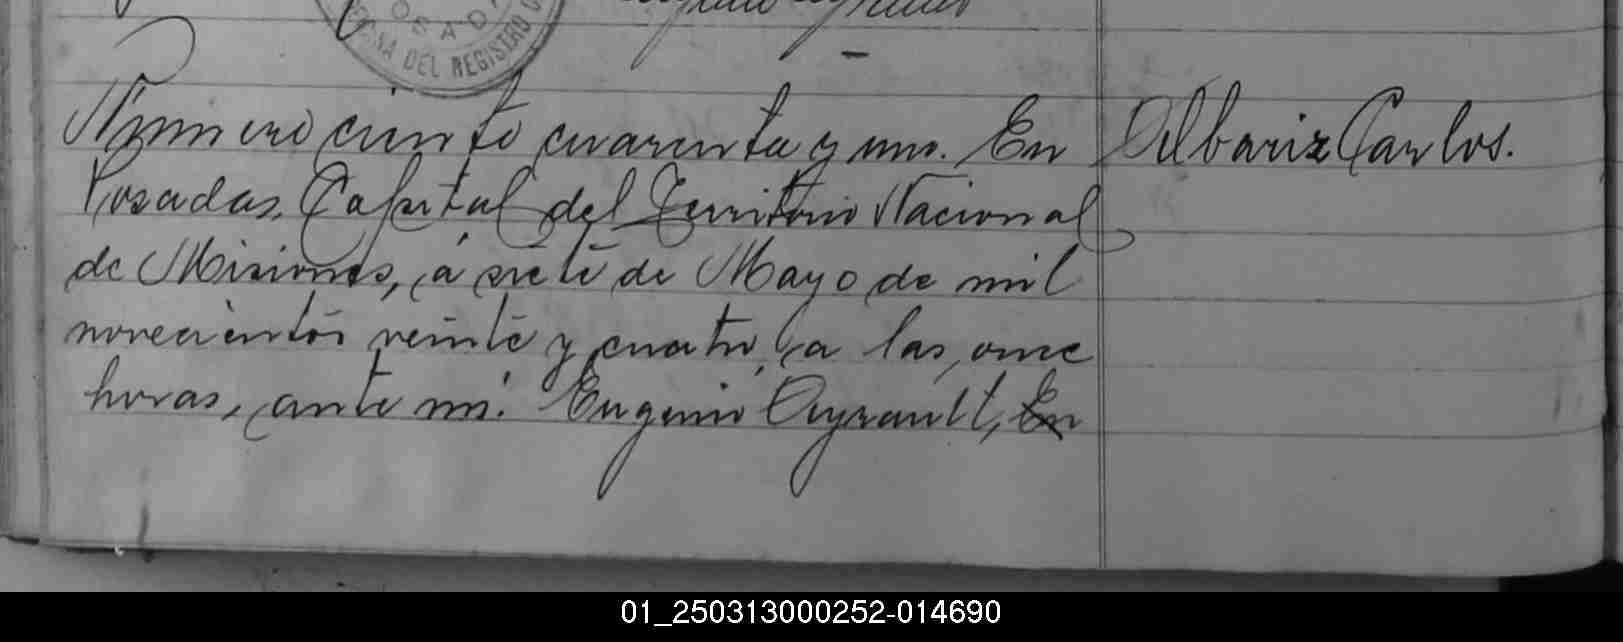 OSADA
NA DEL REGISTRO
Número ciento cuarenta y uno. En
Albariz Carlos.
Posadas, Capital del Territorio Nacional
de Misiones, á siete de Mayo de mil
novecientos veinte y cuatro, a las once
horas, ante mí. Eugenio Ayrault, En
01_250313000252-014690